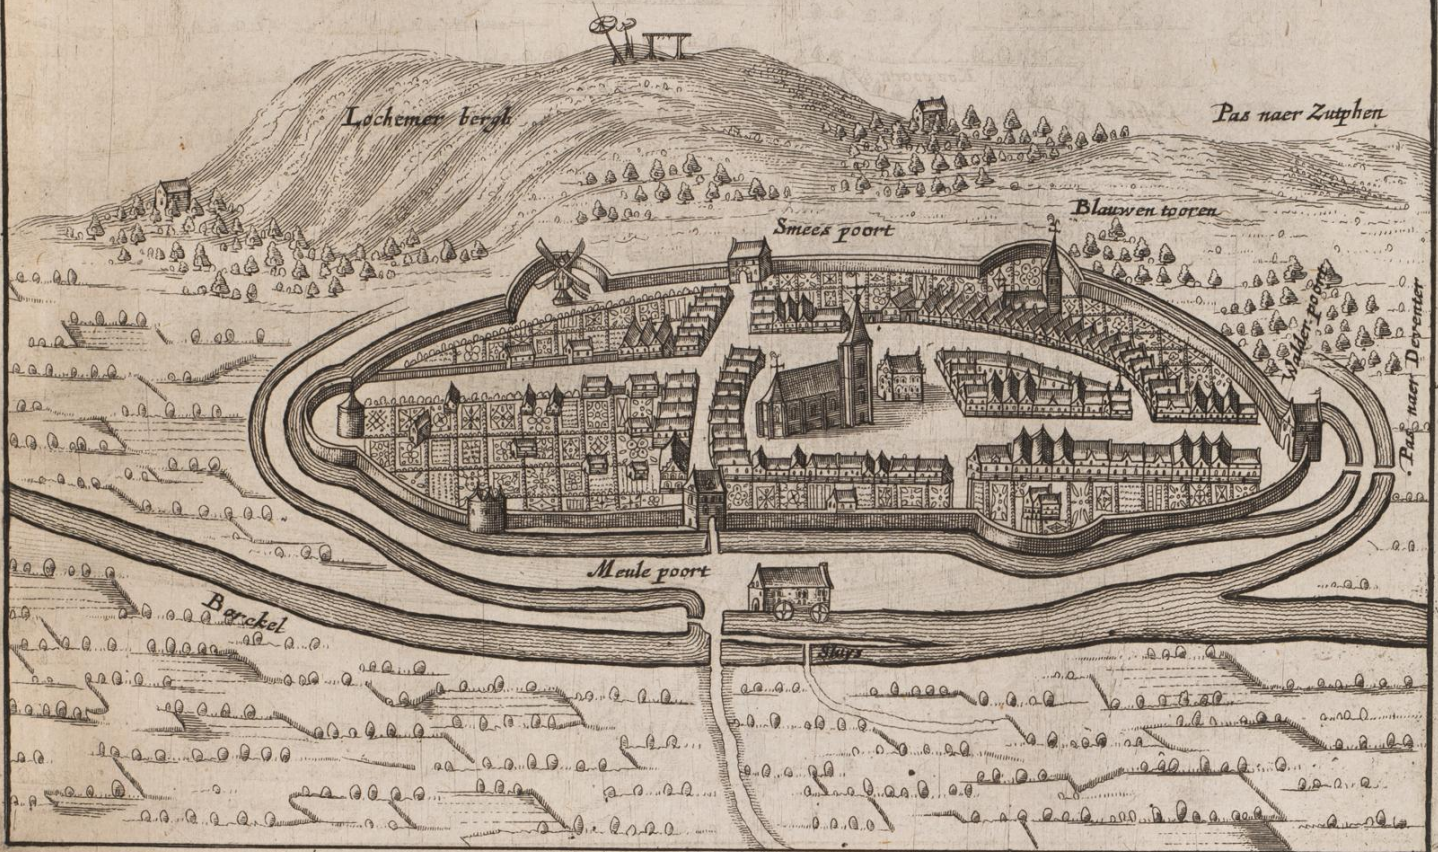 Lochemer bergh
Pas naer Zutphen
Blauwen tooren
Smees poort
Walder poort
Pas naer Deventer
Meule poort
Berckel
Sluys